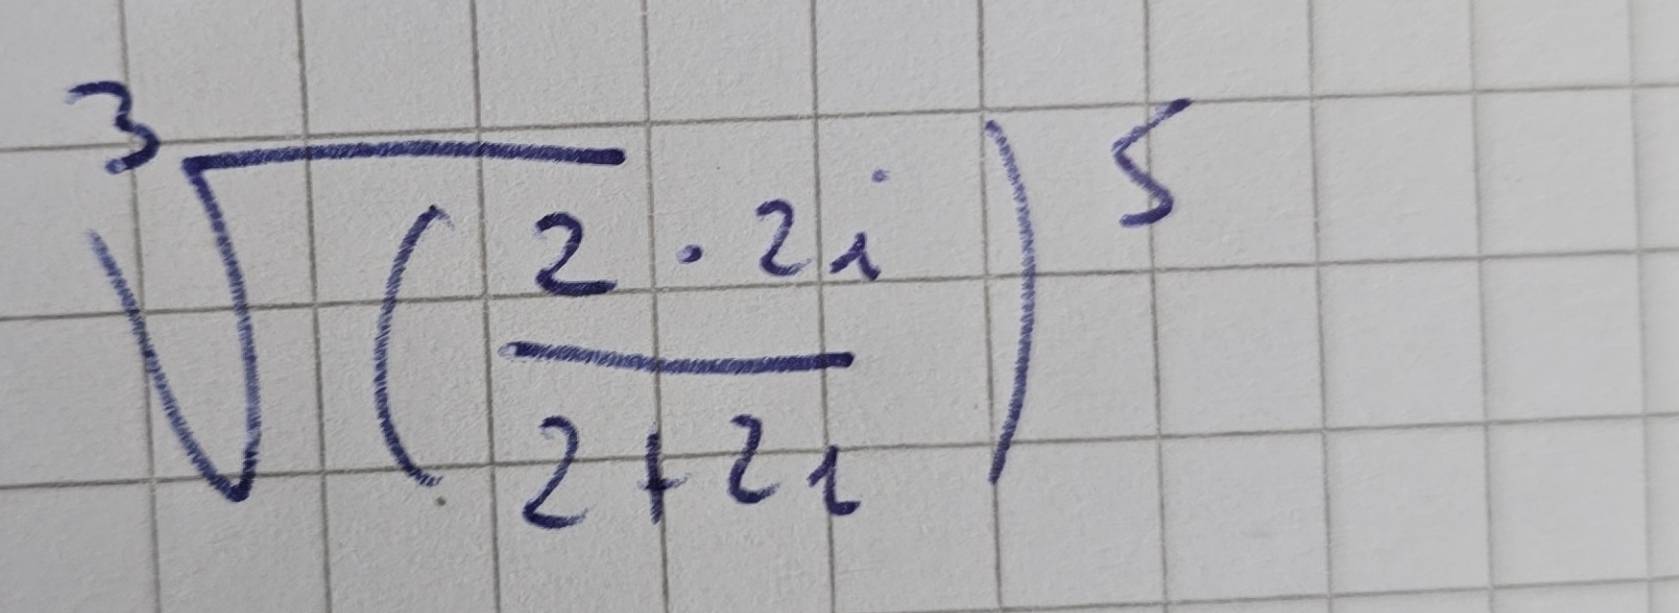 3√(2 · 2i / 2+2i)5